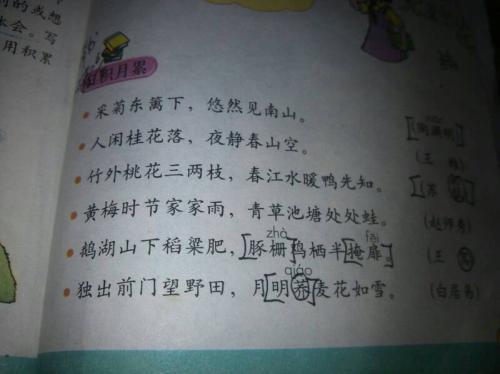 的或想
体会。写
用积累
日积月累
采菊东篱下，悠然见南山。 [陶渊明]
人闲桂花落，夜静春山空。 (王维)
竹外桃花三两枝，春江水暖鸭先知。 [苏轼]
黄梅时节家家雨，青草池塘处处蛙。 (赵师秀)
zhà fēi
鹅湖山下稻粱肥，[豚栅]鸡栖半[掩扉]。 (王驾)
qiáo
独出前门望野田，月[明荞]麦花如雪。 (白居易)